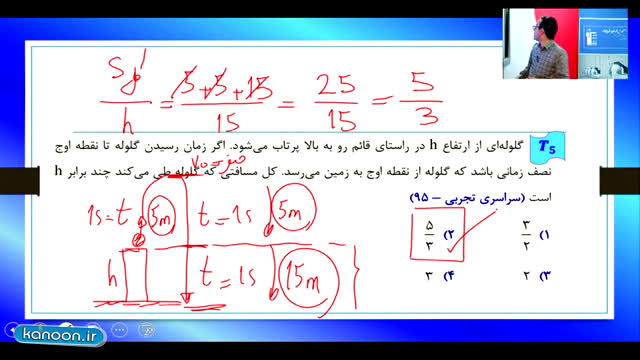 S کل / h = 5+5+15 / 15 = 25 / 15 = 5 / 3
T5
گلوله‌ای از ارتفاع h در راستای قائم رو به بالا پرتاب می‌شود. اگر زمان رسیدن گلوله تا نقطه اوج
نصف زمانی باشد که گلوله از نقطه اوج به زمین می‌رسد. کل مسافتی که گلوله طی می‌کند چند برابر h
است (سراسری تجربی – ۹۵)
V₀ = صفر
۱) ۳/۲
۲) ۵/۳
۳) ۲
۴) ۳
1s = t
5m
t = 1s
5m
h
t = 1s
15m
kanoon.ir